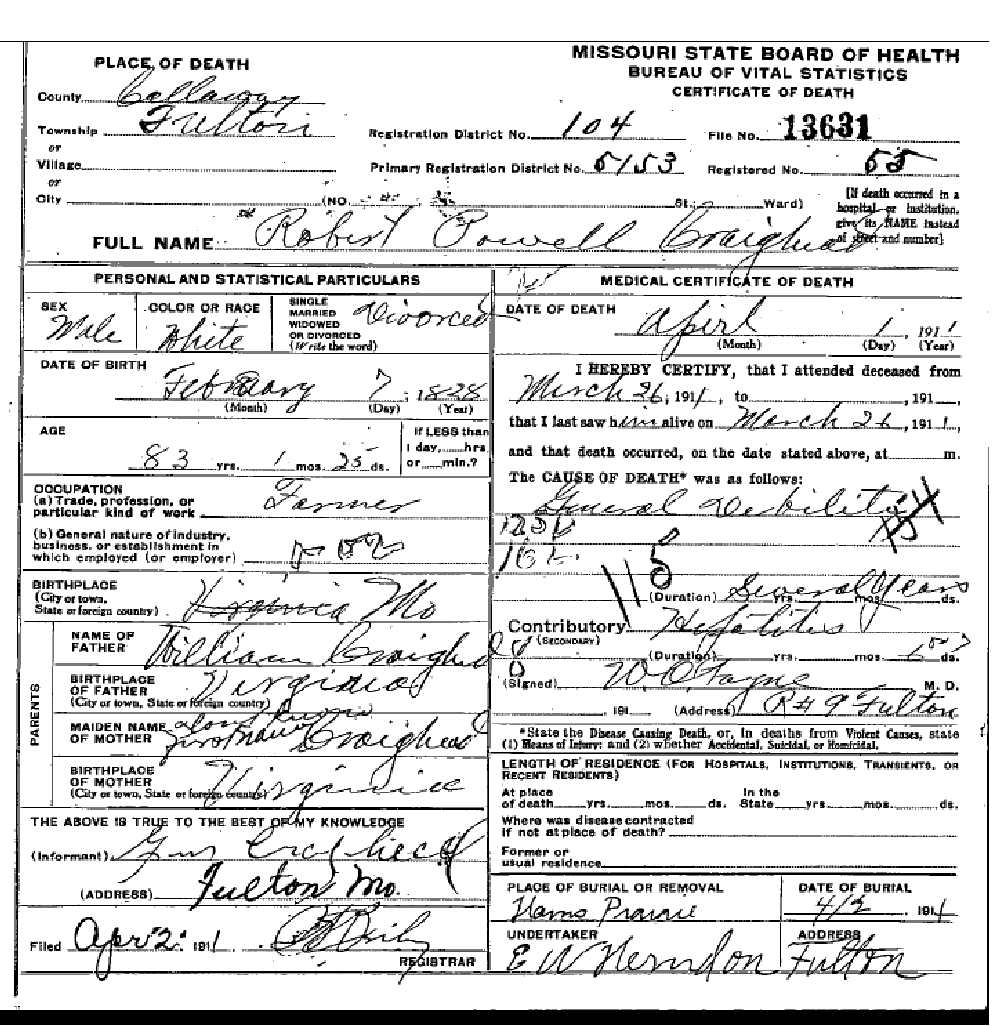 MISSOURI STATE BOARD OF HEALTH
BUREAU OF VITAL STATISTICS
CERTIFICATE OF DEATH
PLACE OF DEATH
County Callaway
Township Fulton
or
Village
or
City (NO. St.; Ward)
Registration District No. 104 File No. 13631
Primary Registration District No. 5153 Registered No. 55
[If death occurred in a
hospital or institution,
give its NAME instead
of street and number]
FULL NAME Robert Powell Craighead
PERSONAL AND STATISTICAL PARTICULARS
SEX
Male
COLOR OR RACE
White
SINGLE
MARRIED
WIDOWED
OR DIVORCED
(Write the word)
Divorced
DATE OF BIRTH
February 7, 1828
(Month) (Day) (Year)
AGE
83 yrs. 1 mos. 25 ds.
If LESS than
1 day, hrs.
or min.?
OCCUPATION
(a) Trade, profession, or
particular kind of work Farmer
(b) General nature of industry,
business, or establishment in
which employed (or employer)
BIRTHPLACE
(City or town,
State or foreign country) Virginia Mo
PARENTS
NAME OF
FATHER William Craighead
BIRTHPLACE
OF FATHER Virginia
(City or town, State or foreign country)
MAIDEN NAME
OF MOTHER Craighead
BIRTHPLACE
OF MOTHER Virginia
(City or town, State or foreign country)
THE ABOVE IS TRUE TO THE BEST OF MY KNOWLEDGE
(Informant)
(ADDRESS) Fulton Mo.
Filed Apr 2, 1911
REGISTRAR
MEDICAL CERTIFICATE OF DEATH
DATE OF DEATH
Apirl 1, 1911
(Month) (Day) (Year)
I HEREBY CERTIFY, that I attended deceased from
March 26, 1911, to , 191 ,
that I last saw him alive on March 26, 1911,
and that death occurred, on the date stated above, at m.
The CAUSE OF DEATH* was as follows:
General
115
(Duration) Several Years yrs. mos. ds.
Contributory
(SECONDARY)
(Duration) yrs. mos. ds.
(Signed) M. D.
, 191 (Address) R#9 Fulton
*State the Disease Causing Death, or, in deaths from Violent Causes, state
(1) Means of Injury; and (2) whether Accidental, Suicidal, or Homicidal.
LENGTH OF RESIDENCE (FOR HOSPITALS, INSTITUTIONS, TRANSIENTS, OR
RECENT RESIDENTS)
At place
of death yrs. mos. ds.
In the
State yrs. mos. ds.
Where was disease contracted
if not at place of death?
Former or
usual residence
PLACE OF BURIAL OR REMOVAL
Hams Prairie
DATE OF BURIAL
4/2, 1911
UNDERTAKER
E W Herndon
ADDRESS
Fulton